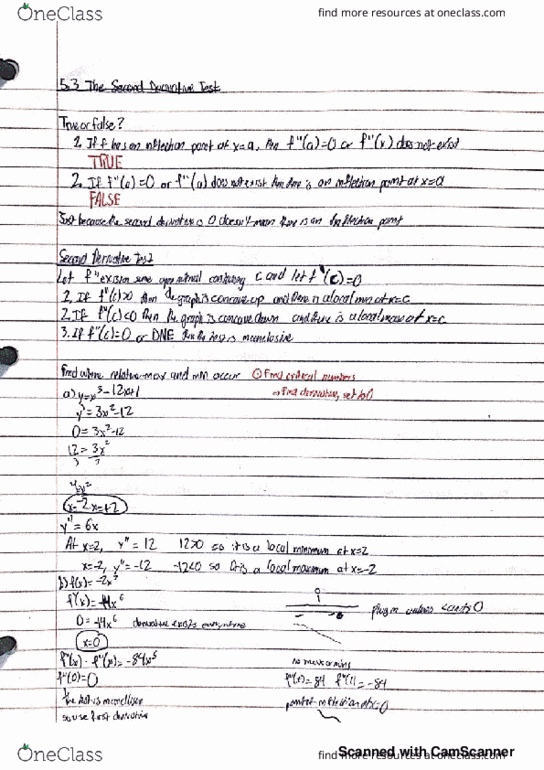 OneClass
find more resources at oneclass.com
5.3 The Second Derivative Test
True or false?
1. If f has an inflection point at x=a, then f''(a)=0 or f''(x) does not exist
TRUE
2. If f''(a)=0 or f''(a) does not exist then there is an inflection point at x=a
FALSE
Just because the second derivative is 0 doesn't mean there is an inflection point
Second Derivative Test
Let f'' exist on some open interval containing c and let f'(c)=0
1. If f''(c)>0 then the graph is concave up and there is a local min at x=c
2. If f''(c)<0 then the graph is concave down and there is a local max at x=c
3. If f''(c)=0 or DNE then the test is inconclusive
Find where relative max and min occur ① Find critical numbers
a) y=x³-12x+1 → Find derivative, set to 0
y'=3x²-12
0=3x²-12
12=3x²
3 3
4=x²
x=-2 x=+2
y''=6x
At x=2, y''=12 12>0 so it is a local minimum at x=2
x=-2, y''=-12 -12<0 so it is a local maximum at x=-2
b) f(x)=-2x⁷
f'(x)=-14x⁶
0=-14x⁶ derivative
x=0
plug in values
f''(x)=-84x⁵
no max or min
f''(0)=0
f''(1)=-84
the test is inconclusive
point of inflection at x=0
so use first derivative
OneClass
find more resources at oneclass.com
Scanned with CamScanner